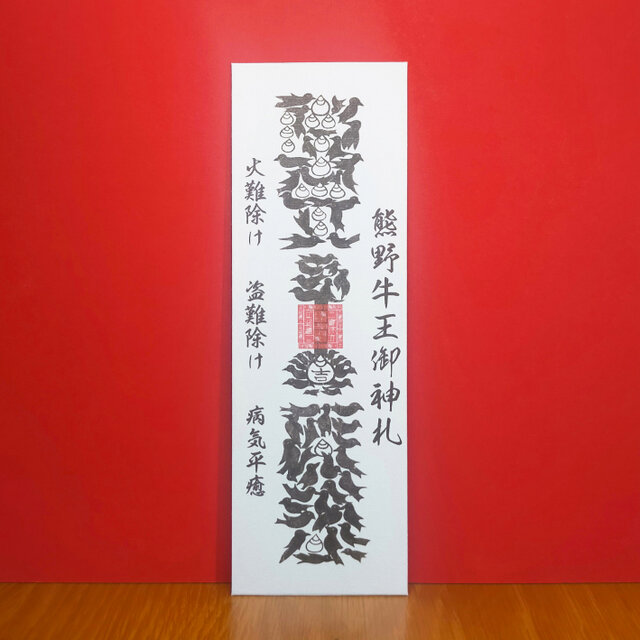 熊野牛王御神札
吉
火難除け 盗難除け 病気平癒